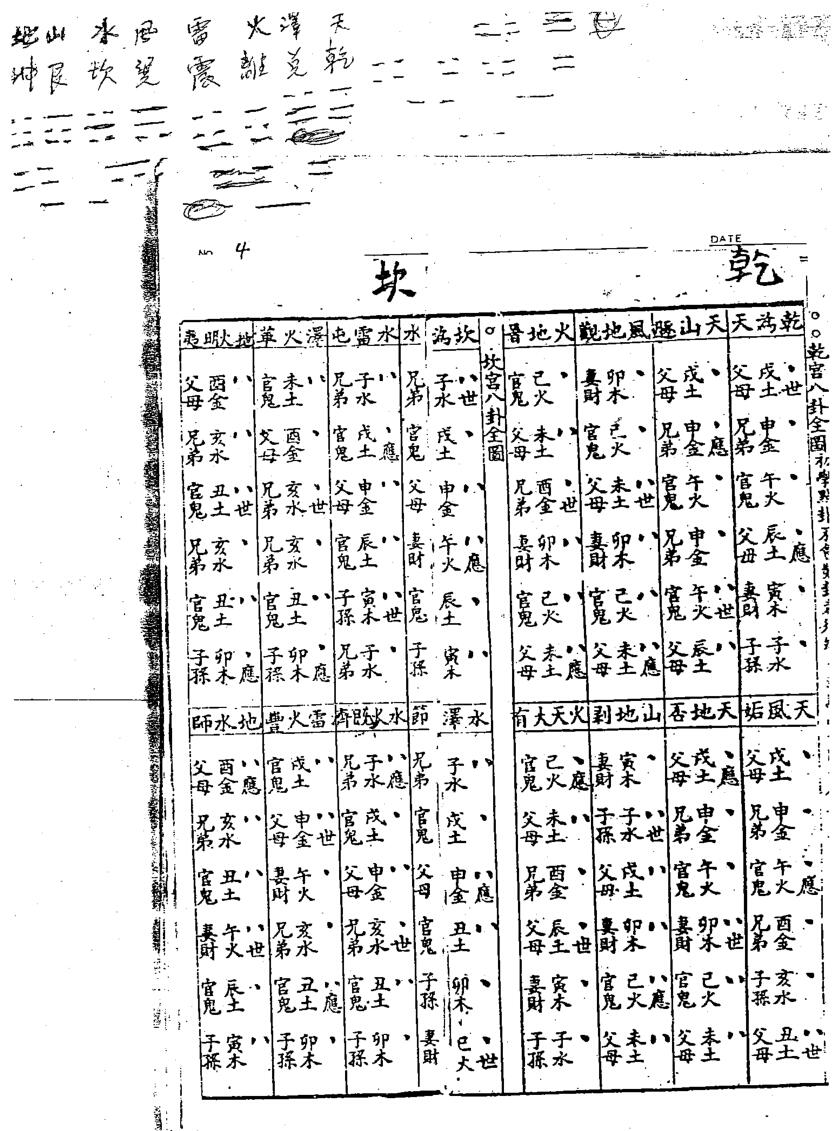 天 澤 火 雷 風 水 山 地
乾 兌 離 震 巽 坎 艮 坤
NO 4
DATE
乾
坎
乾宮八卦全圖
乾為天
父母 戌土 世
兄弟 申金
官鬼 午火
父母 辰土 應
妻財 寅木
子孫 子水
天山遯
父母 戌土
兄弟 申金 應
官鬼 午火
兄弟 申金
官鬼 午火 世
父母 辰土
風地觀
妻財 卯木
官鬼 己火
父母 未土 世
妻財 卯木
官鬼 己火
父母 未土 應
火地晋
官鬼 己火
父母 未土
兄弟 酉金 世
妻財 卯木
官鬼 己火
父母 未土 應
天風姤
父母 戌土
兄弟 申金
官鬼 午火 應
兄弟 酉金
子孫 亥水
父母 丑土 世
天地否
父母 戌土 應
兄弟 申金
官鬼 午火
妻財 卯木 世
官鬼 己火
父母 未土
山地剥
妻財 寅木
子孫 子水 世
父母 戌土
妻財 卯木
官鬼 己火 應
父母 未土
火天大有
官鬼 己火 應
父母 未土
兄弟 酉金
父母 辰土 世
妻財 寅木
子孫 子水
坎宮八卦全圖
坎為水
兄弟 子水 世
官鬼 戌土
父母 申金
妻財 午火 應
官鬼 辰土
子孫 寅木
水雷屯
兄弟 子水
官鬼 戌土 應
父母 申金
官鬼 辰土
子孫 寅木 世
兄弟 子水
澤火革
官鬼 未土
父母 酉金
兄弟 亥水 世
兄弟 亥水
官鬼 丑土
子孫 卯木 應
地火明夷
父母 酉金
兄弟 亥水
官鬼 丑土 世
兄弟 亥水
官鬼 丑土
子孫 卯木 應
水澤節
兄弟 子水
官鬼 戌土
父母 申金 應
官鬼 丑土
子孫 卯木
妻財 巳火 世
水火既濟
兄弟 子水 應
官鬼 戌土
父母 申金
兄弟 亥水 世
官鬼 丑土
子孫 卯木
雷火豐
官鬼 戌土
父母 申金 世
妻財 午火
兄弟 亥水
官鬼 丑土 應
子孫 卯木
地水師
父母 酉金 應
兄弟 亥水
官鬼 丑土
妻財 午火 世
官鬼 辰土
子孫 寅木